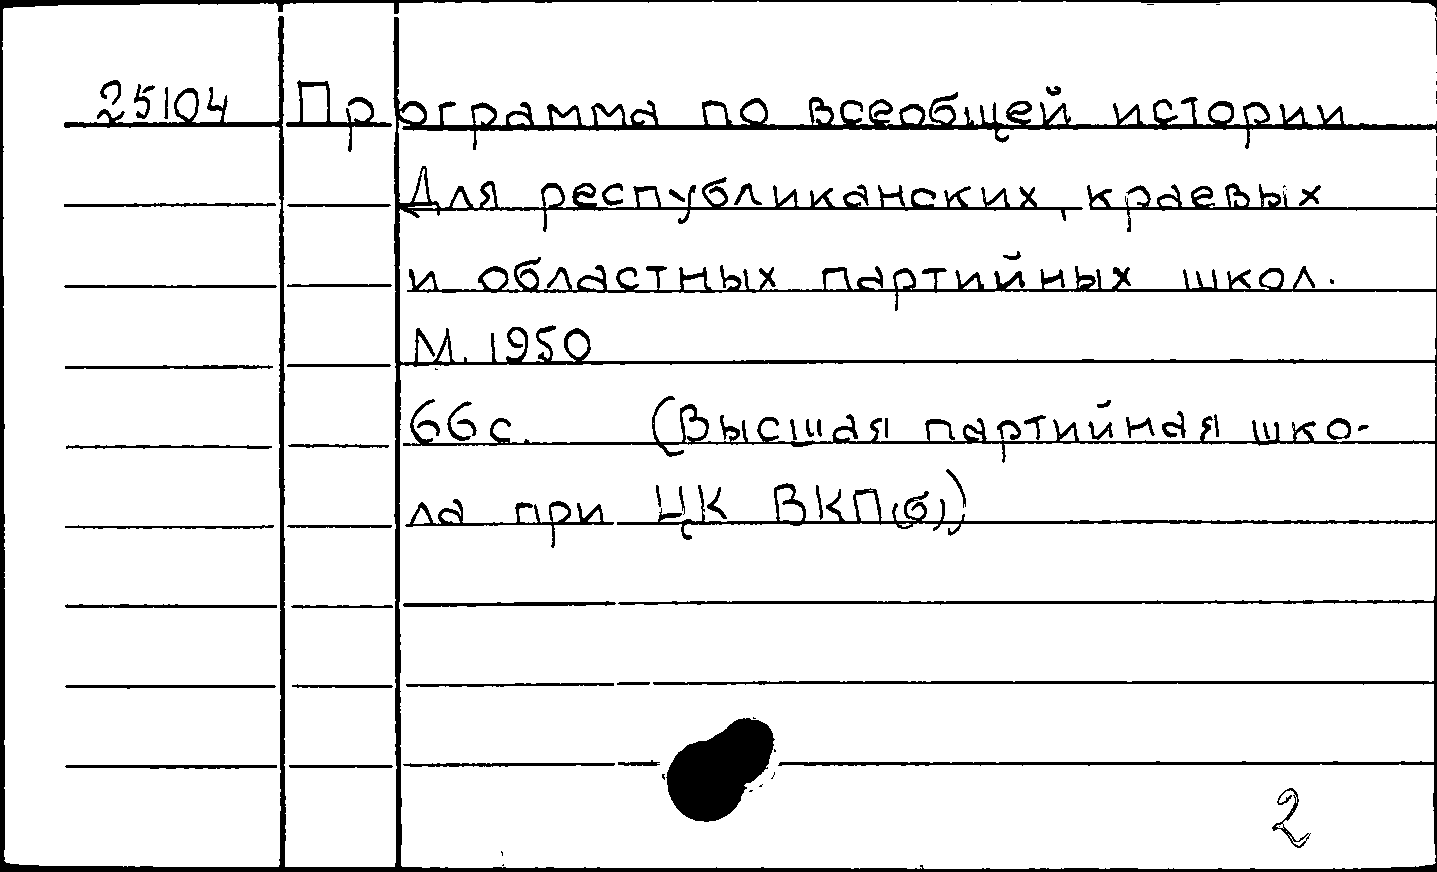 25104 Программа по всеобщей истории
Для республиканских, краевых
и областных партийных школ.
М. 1950
66 с. (Высшая партийная шко-
ла при ЦК ВКП(б))
2